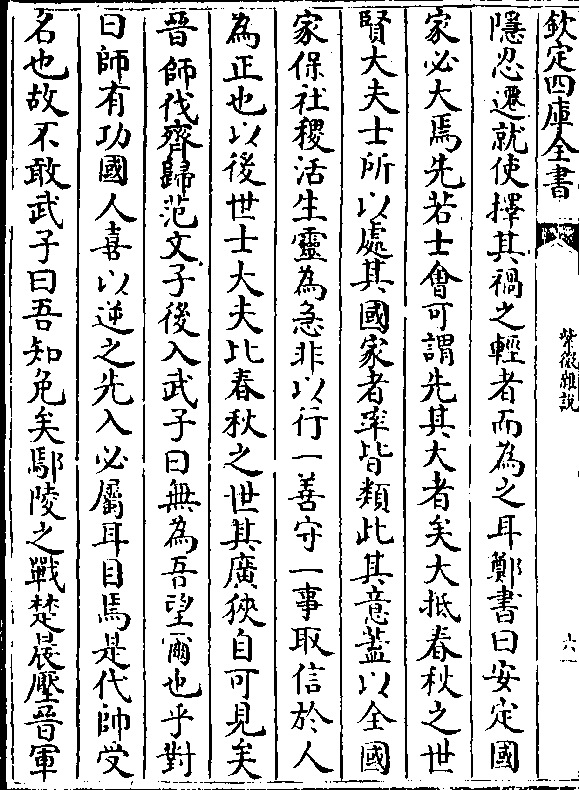 欽定四庫全書
紫微雜說
六
隱忍遷就使擇其禍之輕者而為之耳鄭書曰安定國
家必大焉先若士會可謂先其大者矣大抵春秋之世
賢大夫士所以處其國家者率皆類此其意蓋以全國
家保社稷活生靈為急非以行一善守一事取信於人
為正也以後世士大夫比春秋之世其廣狹自可見矣
晉師伐齊歸范文子後入武子曰無為吾望爾也乎對
曰師有功國人喜以逆之先入必屬耳目焉是代帥受
名也故不敢武子曰吾知免矣鄢陵之戰楚晨壓晉軍